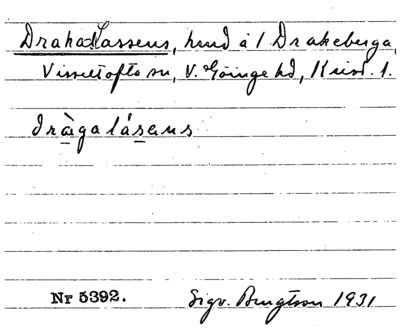 Draka-Lassens, hmd å 1 Drakeberga,
Visseltofta sn, V. Göinge hd, Krist. l.
dràgalásens
Nr 5392. Sigv. Bengtson 1931